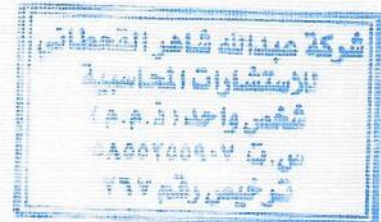 شركة عبدالله شاهر القحطاني
للإستشارات المحاسبية
شخص واحد (ذ.م.م)
س.ت
ترخيص رقم ٢٦٧